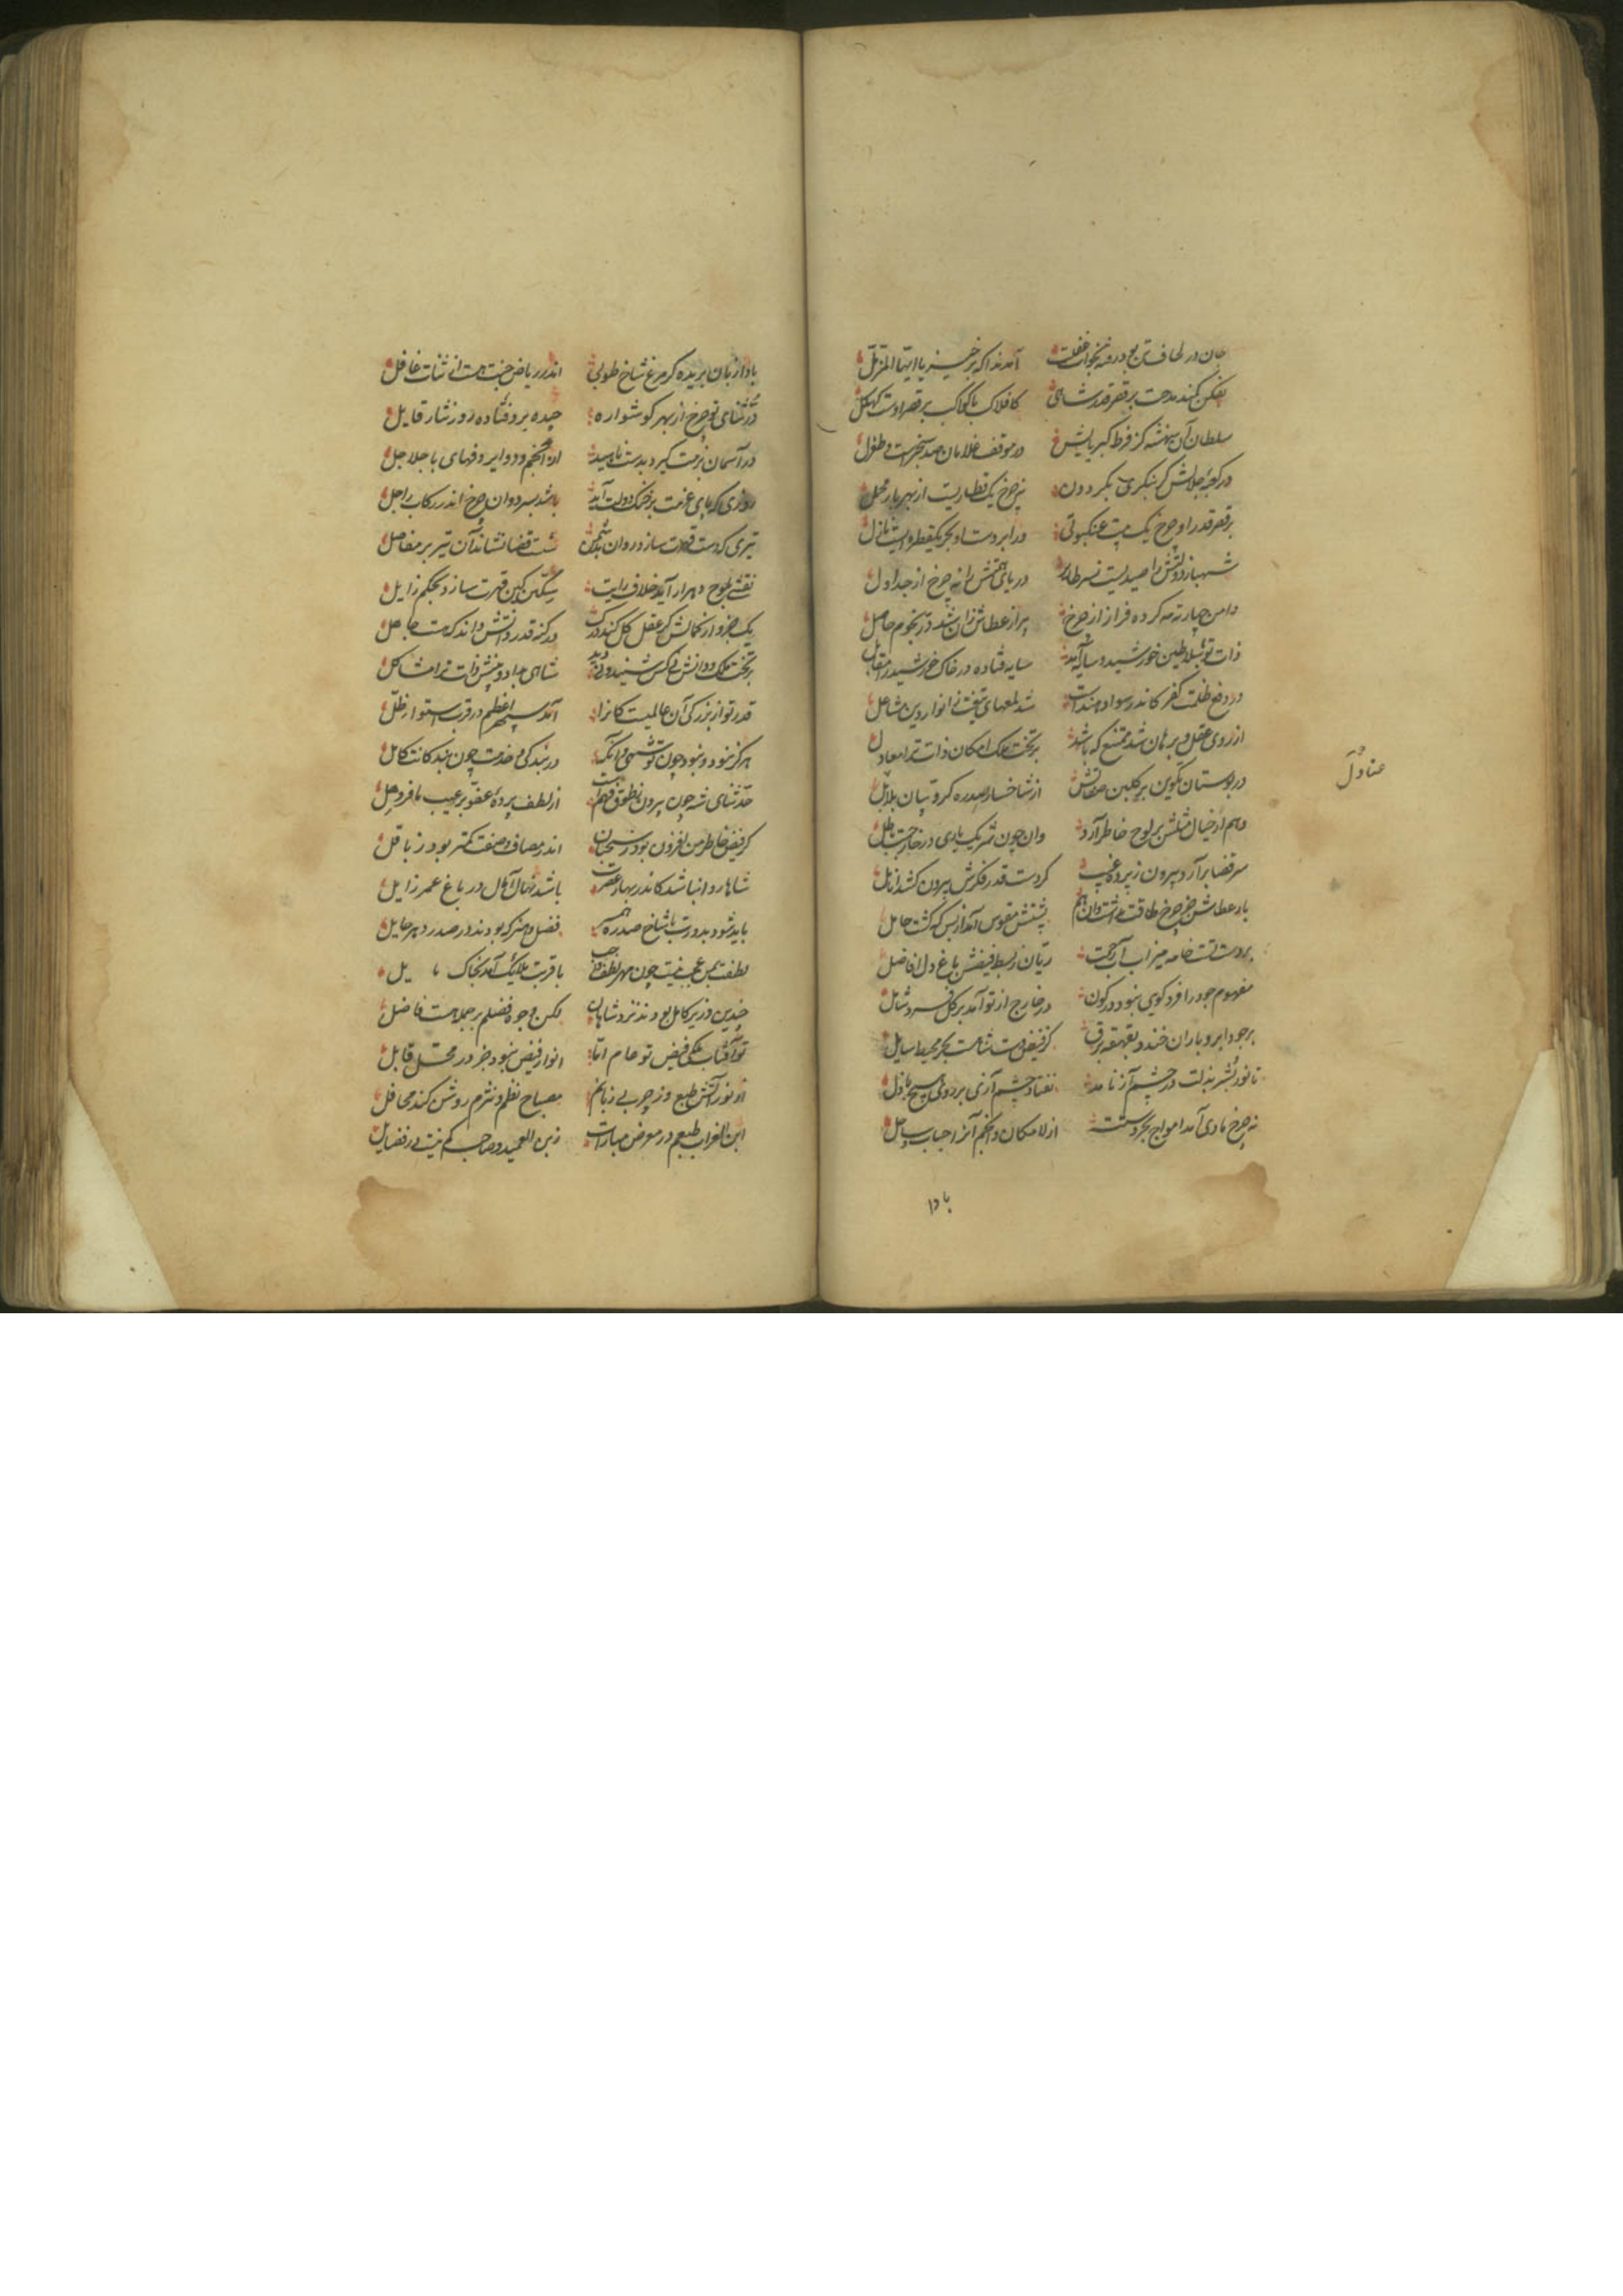 جان در لحاف تن بود رفته بخواب غفلت آمد ندا که برخیز یا ایها المزمل
بفکن کمند مدحت بر قصر قدر شاهی کافلاک با کواکب بر قصر اوست کهکل
سلطان آن شهنشه کز فرط کبریایش در موقف غلامان صد سنجرست و طغرل
در کعبه جلالش گر بنگری بگردون نه چرخ یک قطاریست از بهر بار محمل
بر قصر قدر او چرخ یک بیت عنکبوتی در ابر دست او بحر یکقطره ایست نازل
شهباز دولتش را صیدیست نسر طایر دریای همتش را نه چرخ از جداول
دامن چار ته کرده فراز از چرخ پر از عطاش زان شد در نجوم حاصل
ذات تو سلاطین خورشید و سایه آمد سایه فتاده در خاک خورشید در مقابل
در دفع ظلمت کفر کاندر سواد هندست شد لمعهای تیغت ز انوار دین مشاعل
از روی عقل و برهان شد ممتنع که باشد بر تخت ملک امکان ذات ترا معادل
در بوستان تکوین بر گلبن صفاتش از شاخسار سدره کروبیان بلابل
عنادل
وهم از خیال مثلش بر لوح خاطر آرد وان چون شریک باری در خارجست باطل
سر قضا برآرد بیرون ز پرده غیب گر دست قدر فکرش بیرون کشد انامل
بار عطاش چرخ طاقت نداشت وان هم پشتش مقوس آمد از بس که گشت حامل
بر دست تست خامه میزاب آب حکمت ریان ز بسط فیضش باغ دل افاضل
مفهوم جود را فرد گویی نبود در کون در خارج از تو آمد بر کل فرد شامل
بر جود ابر و باران خندد بقهقهه برق کز فیض دست شاهست بحر محیط سایل
تا نور بشر بذلت در چشم آز نامد نفتاد چشم آزی بر روی هیچ باذل
نه چرخ نادی آمد امواج بحر دستت از لامکان و انجم آنرا حباب ساحل
بادا
بادا زبان بریده گر مرغ شاخ طوبی اندر ریاض جنت هست از ثنات غافل
در ثنای تو چرخ از بهر گوشواره چیده بر و فتاده روز نثار قایل
در آسمان بزمت گیرد بدست ناهید از انجم و دوایر دفهای با جلاجل
روزی که پای عزمت بر خنگ دولت آید باشد بسر دوان چرخ اندر رکاب راجل
تیری که دست قدرت سازد روان شست قضا نشاند آن تیر بر مفاصل
نقشی بلوح دهر ار آید خلاف رایت سکین کین قهرت سازد بحکم زایل
یک جزو از کمالش گر عقل کل کند درک در کنه قدر و دانش داند که هست جاهل
بر تخت ملک و دانش کس شنید و نی دید شاهی بداد و بینش ذات ترا مشاکل
قدر تو از بزرگی آن عالمیست کانرا آمد سپهر اعظم در قرب استوا ظل
هرگز نبود و نبود چون تو شهی و آنکه در بندگی و خدمت چون بندگانت کامل
حد ثنای شه چون بیرون ز نطق و فهم است از لطف پرده عفو بر عیب ما فروهل
گر فیض خاطر من افزون بود ز سحبان اندر مصاف وصفت کمتر بود ز باقل
شاها روا نباشد کاندر بهار عصرت باشد نهال آمال در باغ عمر زایل
باید شود بدورت با شاخ سدره همسر فضل و هنر که بودند در صدر دهر حایل
لطفت بمن عجب نیست چون مهر لطف واجب با قربت ملائک آمد بخاک یل
چندین وزیر کامل بودند نزد شاهان لکن وجوه فضلم بر جمله هست فاضل
تو آفتاب ملکی فیض تو عام اما انوار فیض نبود جز در محل قابل
از نور آتش طبع وز چرب بی زبانم مصباح نظم و نثرم روشن کند محافل
ابن الغراب طبعم در معرض مبارات زبن العمید و صاحب کم نیست در فضایل